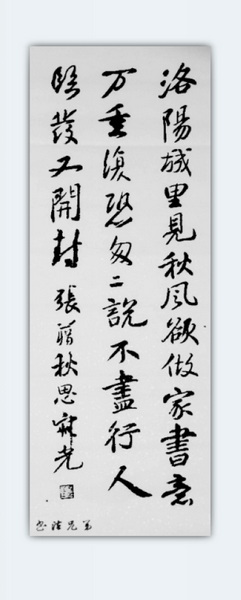 洛陽城里見秋風欲做家書意
万重復恐匆二說不盡行人
臨發又開封 張籍秋思